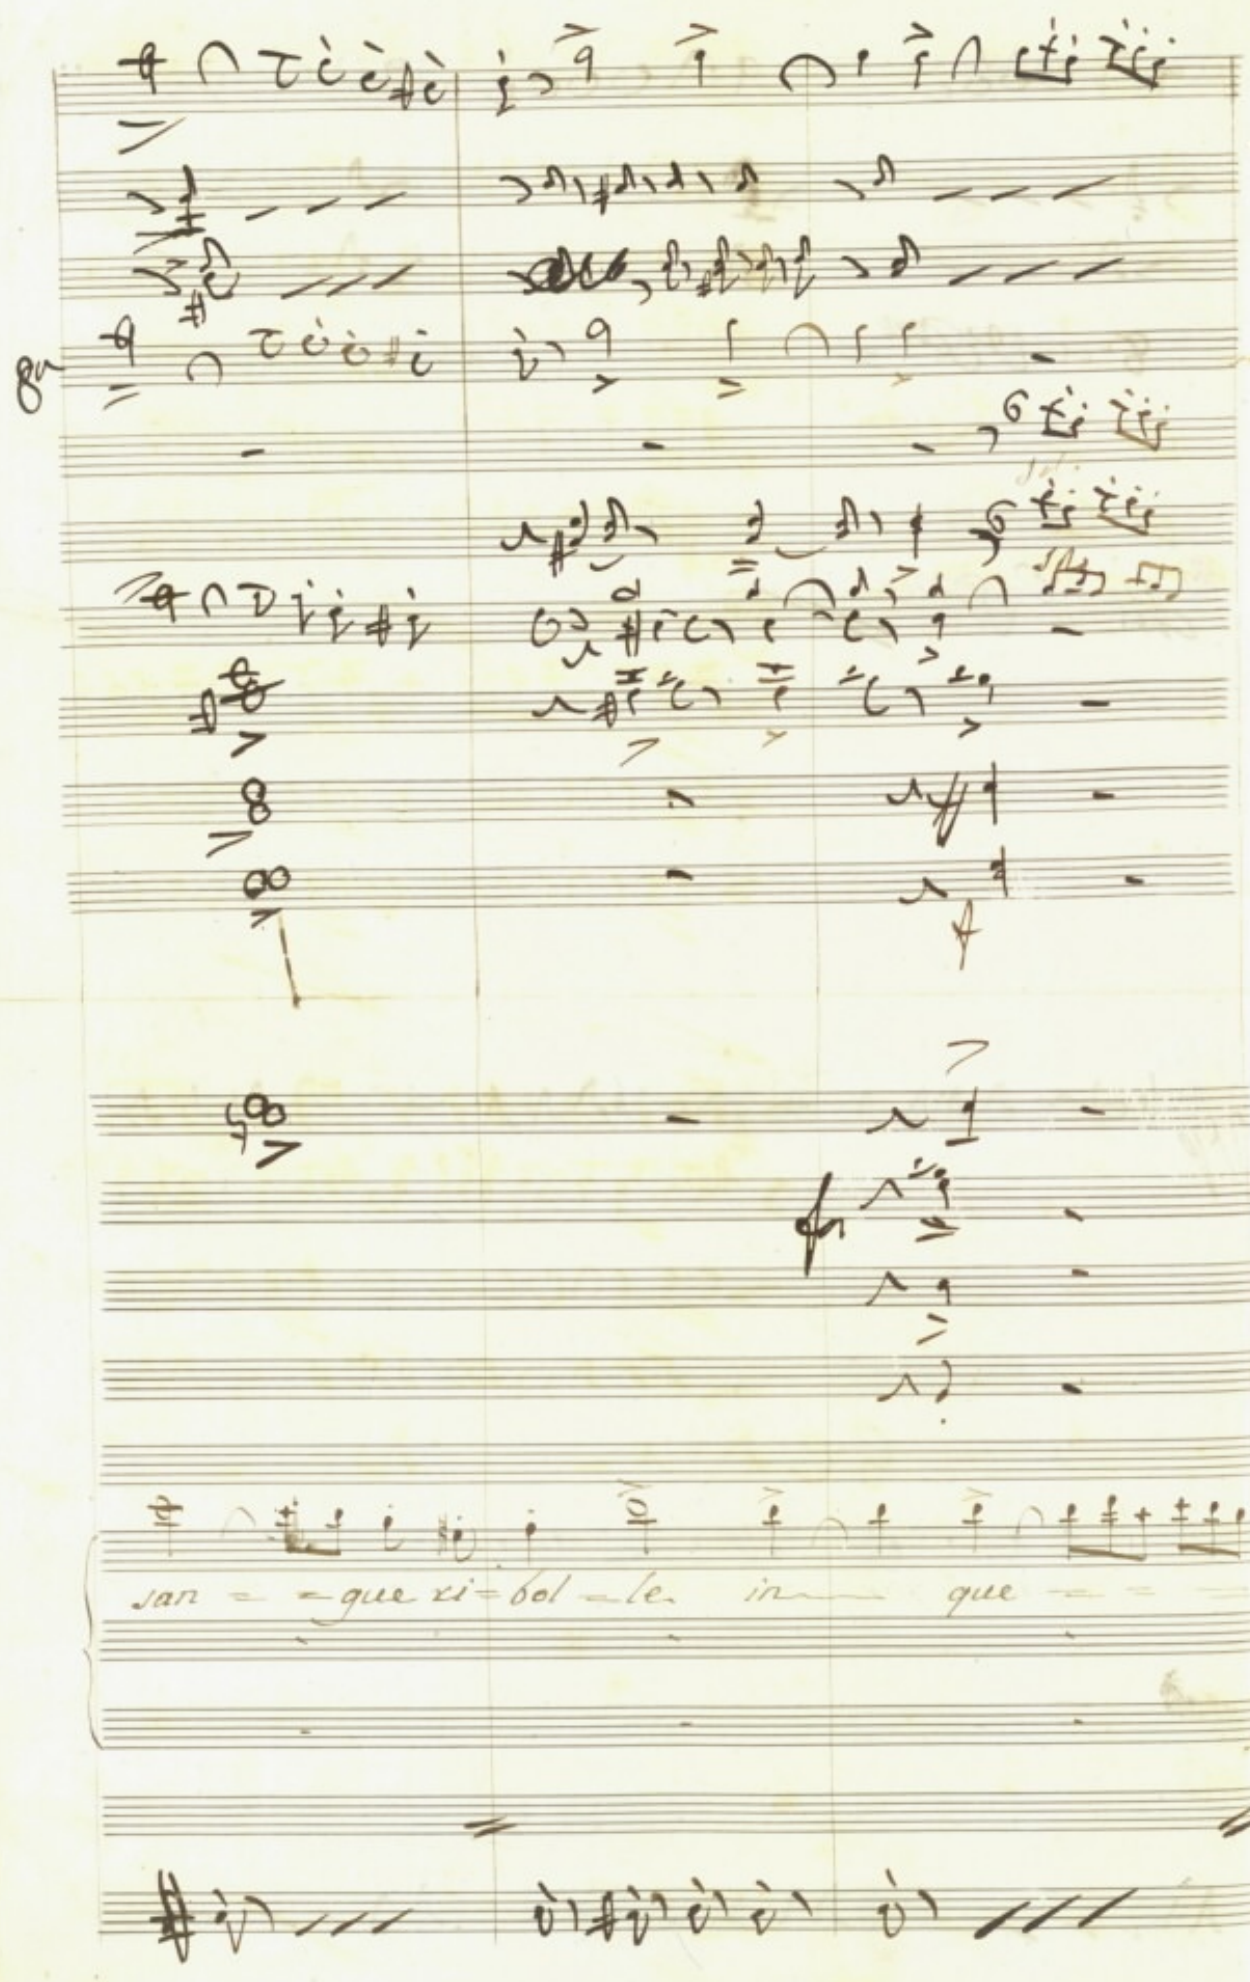 8a
6
6
f
san = = gue ri = bol = le in que = = =